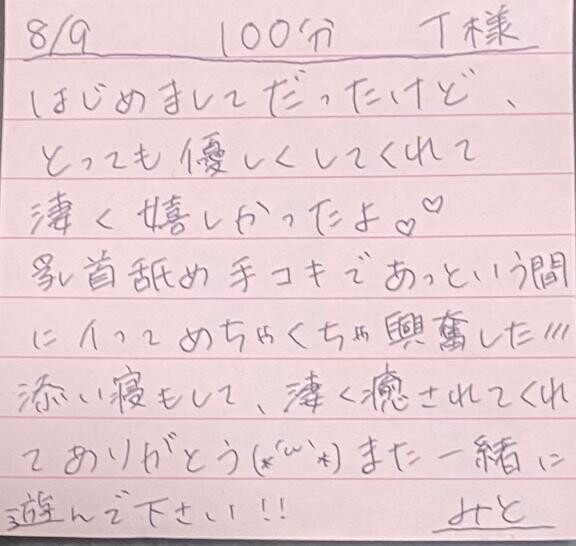 8/9 100分 T様
はじめましてだったけど、
とっても優しくしてくれて
凄く嬉しかったよ♡♡
乳首舐め手コキであっという間
にイってめちゃくちゃ興奮した!!!
添い寝もして、凄く癒されてくれ
てありがとう(*´ω`*)また一緒に
遊んで下さい!!
みと